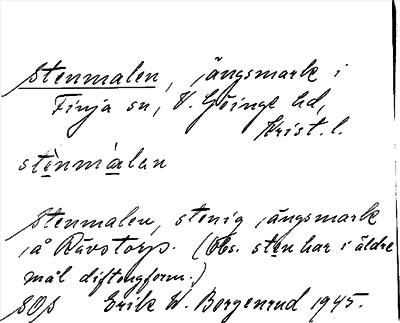 Stenmalen, ängsmark i
Finja sn, V. Göinge hd,
Krist. l.
stenmalan
Stenmalen, stenig ängsmark
på Rävstorp. (Obs. sten har i äldre
mål diftongform.)
SOS Erik W. Borgenrud 1945.